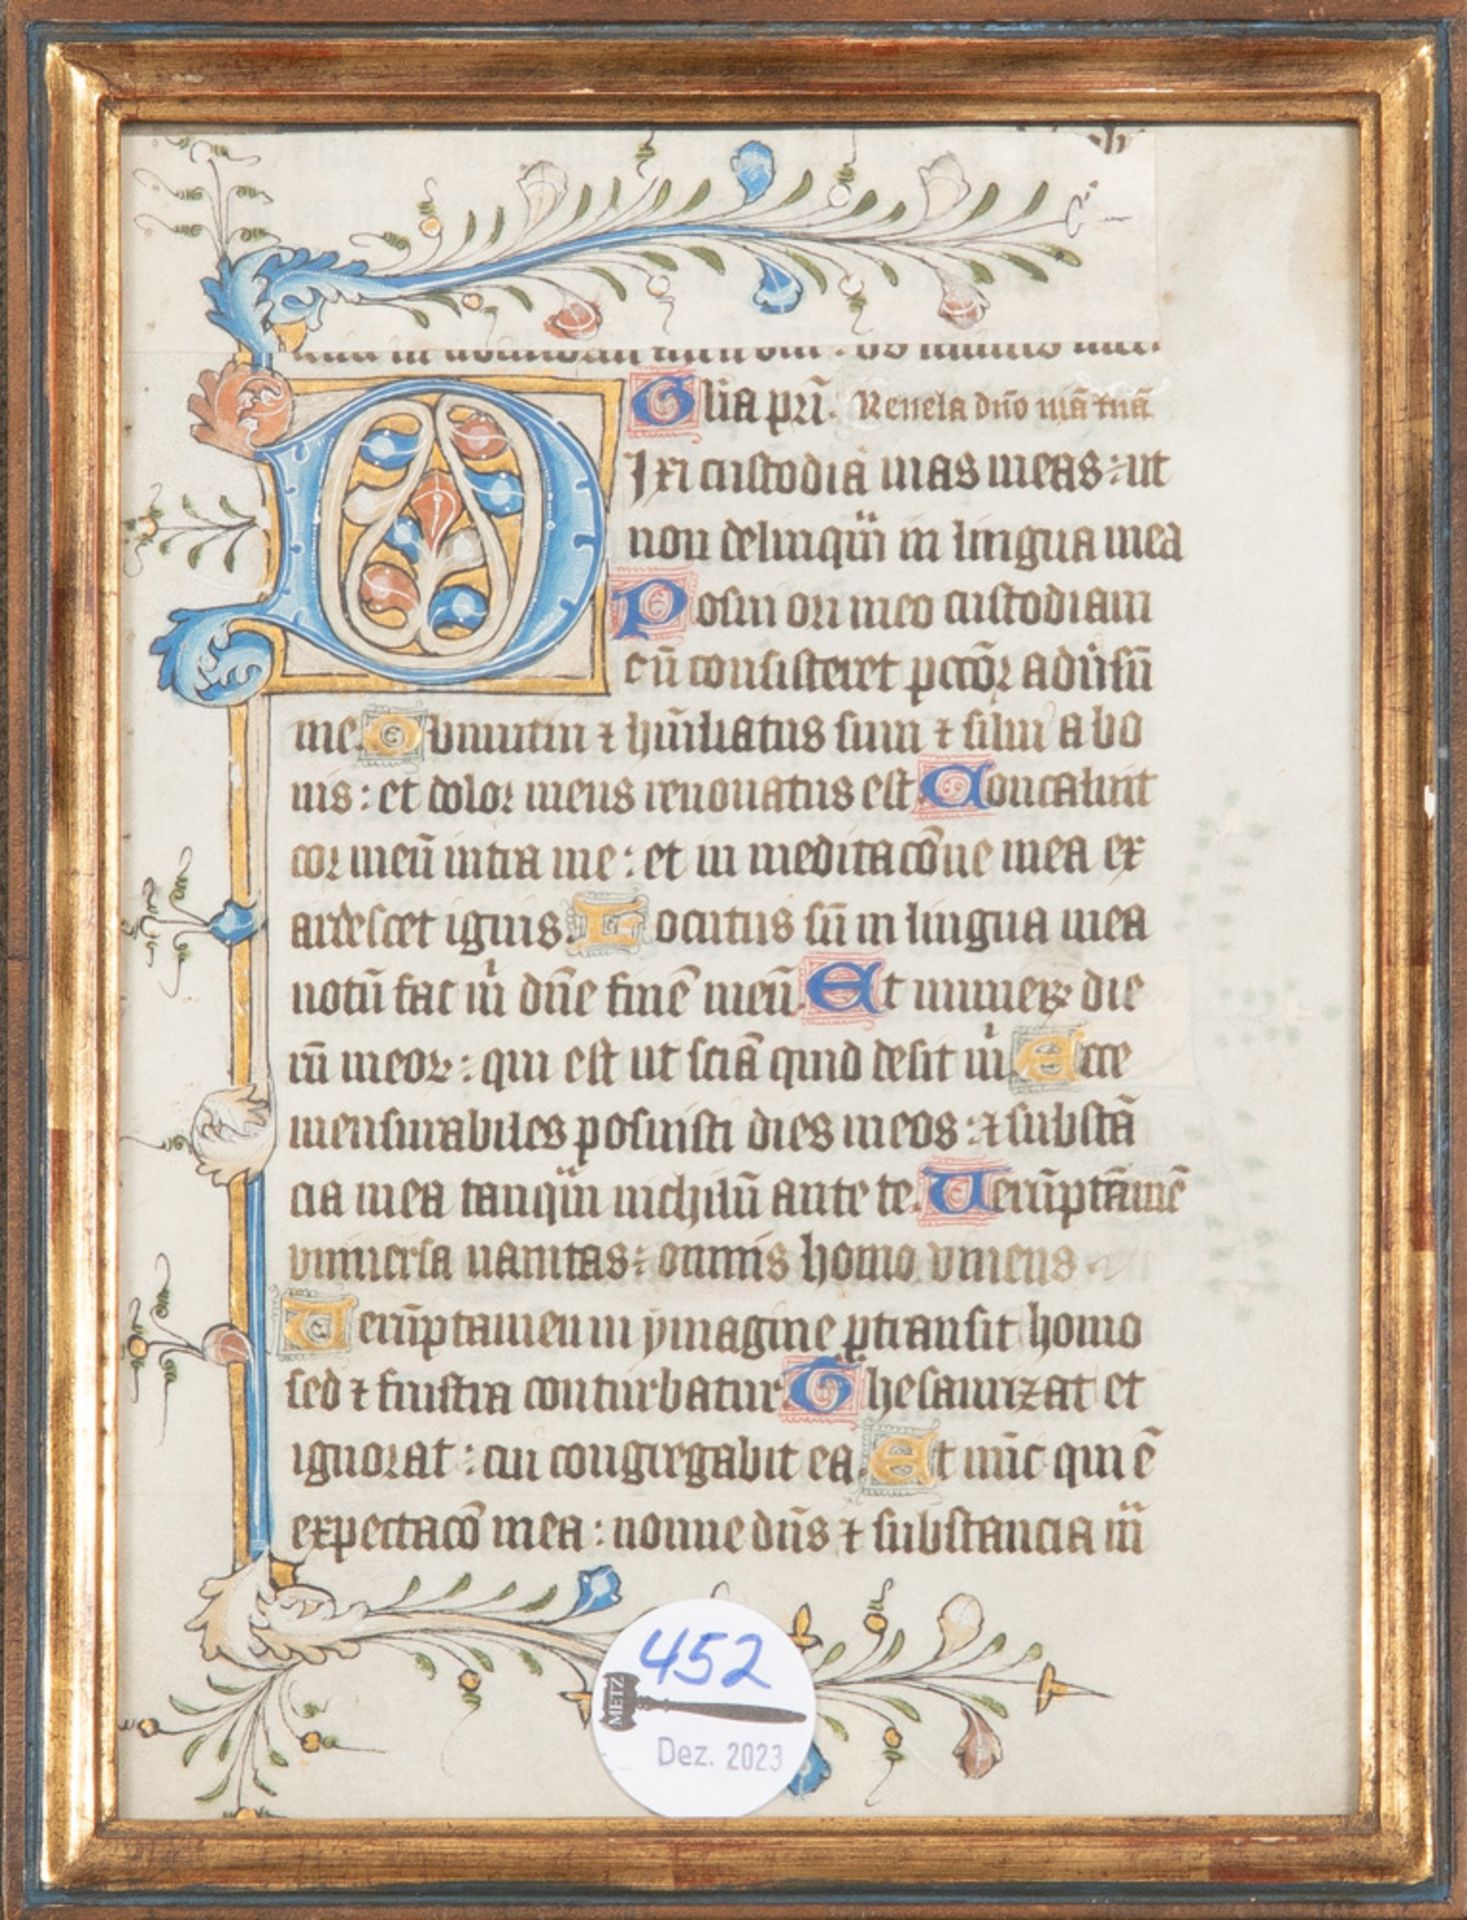 Glia pr̄i. Revela dn̄o viā tuā
Dixi custodiā vias meas : ut
non delinquā in lingua mea
Posui ori meo custodiam
cū consisteret pccōr adūsū
me. Obmutui ⁊ hūiliatus sum ⁊ silui a bo
nis : et dolor meus renovatus est Concaluit
cor meū intra me : et in meditacōne mea ex
ardescet ignis. Locutus sū in lingua mea
notū fac mi dn̄e finē meū. Et numeꝝ die
rū meoꝝ : qui est ut sciā quid desit mi. Ecce
mensurabiles posuisti dies meos : ⁊ substā
cia mea tanqm̄ nichilū ante te. Uerūptāmē
universa vanitas : omnis homo vivens
Uerūptamen in ymagine ꝑtransit homo
sed ⁊ frustra conturbatur. Thesaurizat et
ignorat : cui congregabit ea. Et nūc que ē
expectacō mea : nonne dn̄s ⁊ substancia m̄
452
METZ
Dez. 2023